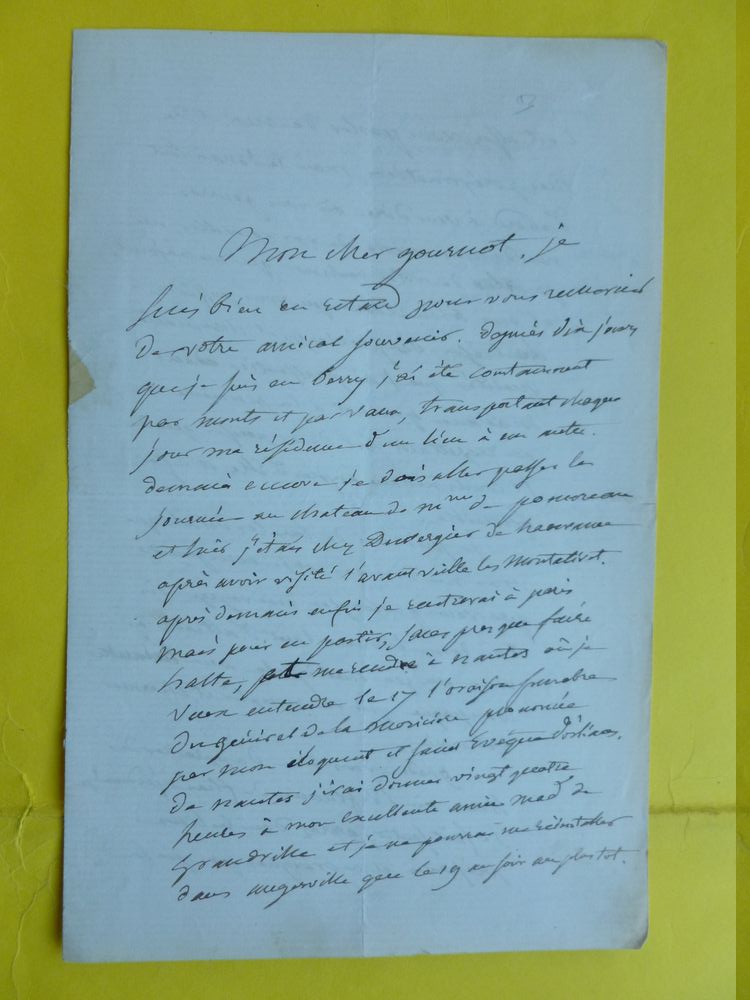 Mon cher gournot, je
suis bien en retard pour vous remercier
de votre amical souvenir. depuis dix jours
que je suis en Berry j'ai été constamment
par monts et par vaux, transportant chaque
jour ma résidence d'un lieu à un autre.
demain encore je dois aller passer la
journée au chateau de mme de
et hier j'étais chez Duvergier de hauranne
après avoir visité l'avant veille les Montalivet.
après demain enfin je rentrerai à paris
mais pour en partir, sans presque faire
halte, et me rendre à nantes où je
veux entendre le 17 l'oraison funebre
du général de la Moricière prononcée
par mon éloquent et saint Evêque d'orléans.
de nantes j'irai donner vingt quatre
heures à mon excellente amie mad de
Grandville et je ne pourrai me réinstaller
dans augerville que le 19 au soir au plus tot.